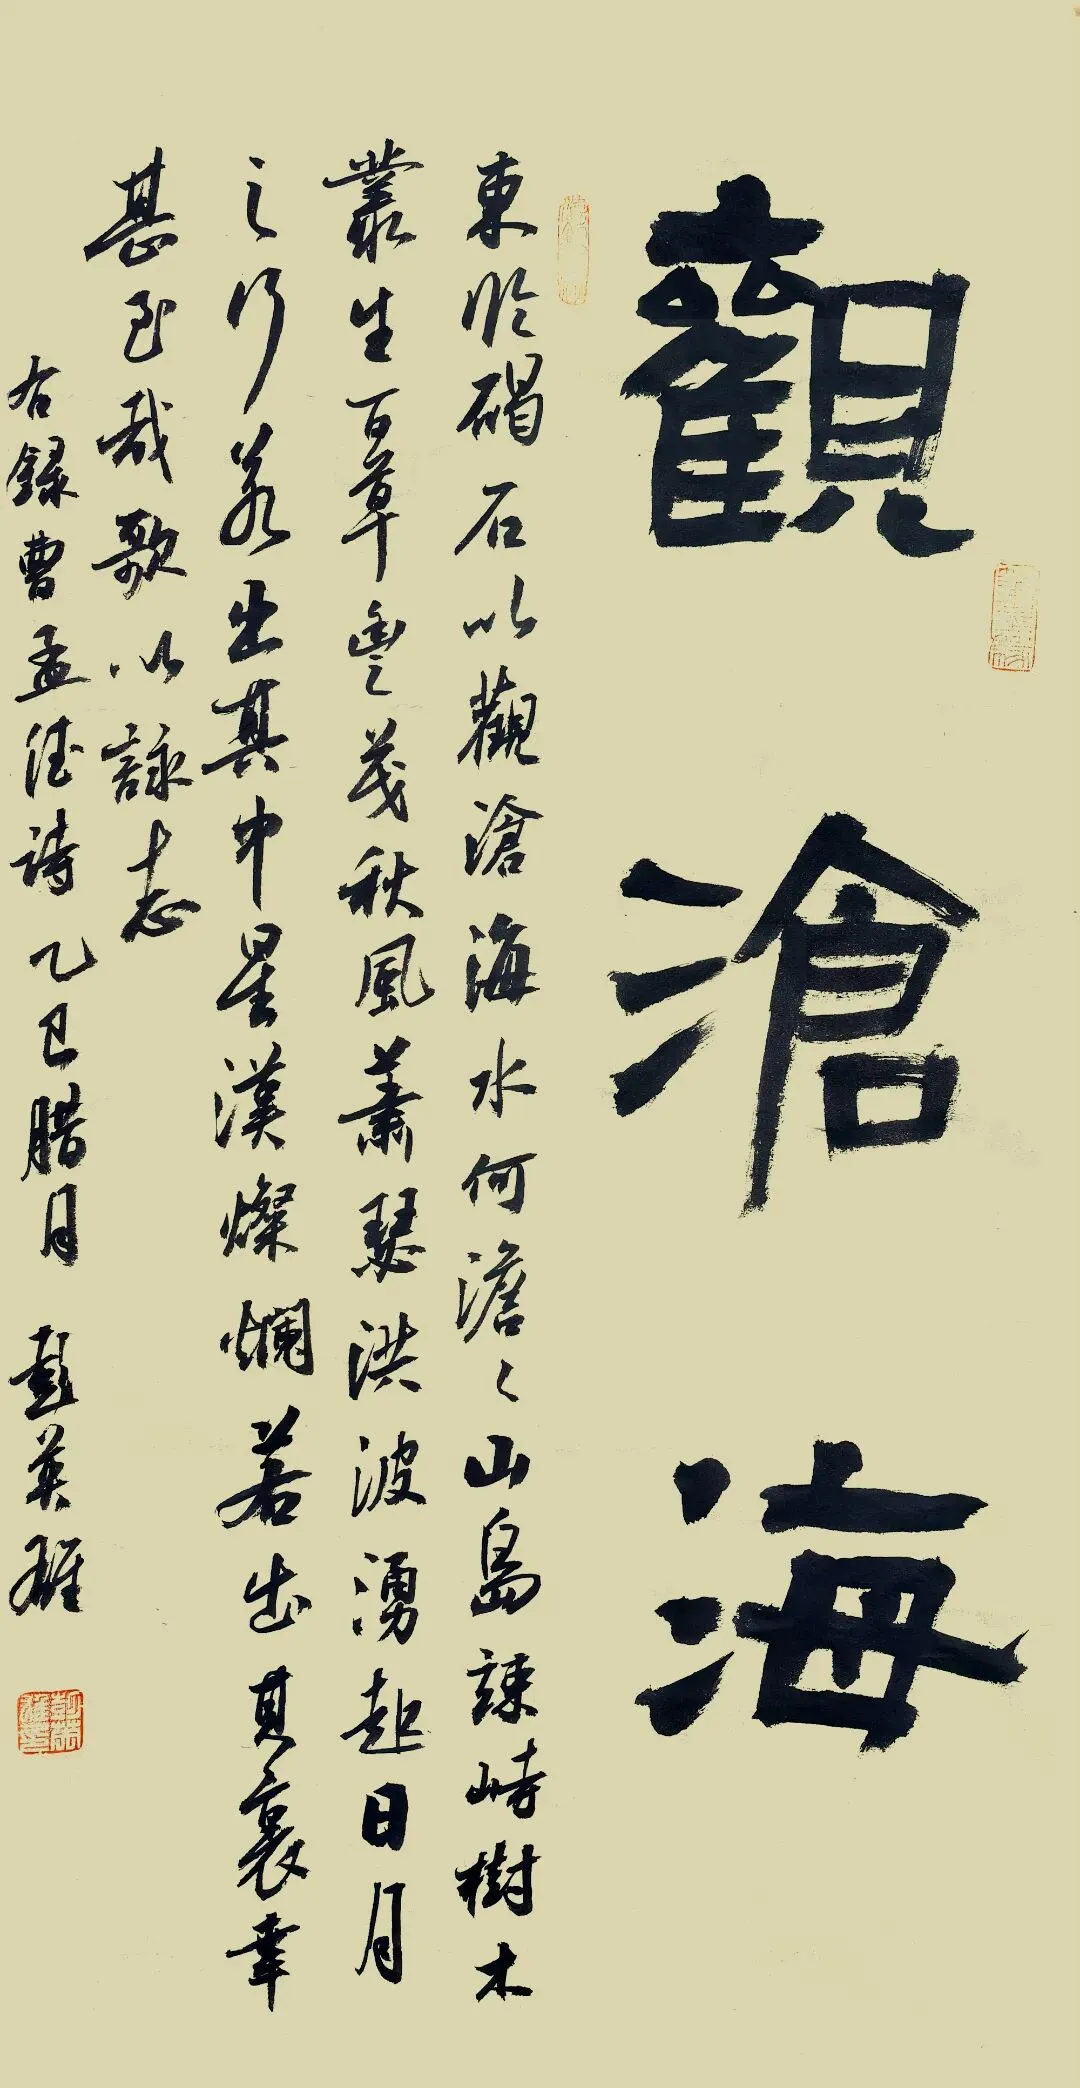 觀滄海
東臨碣石以觀滄海水何澹々山島竦峙樹木
叢生百草豐茂秋風蕭瑟洪波湧起日月
之行若出其中星漢燦爛若出其裏幸
甚至哉歌以詠志
右録曹孟德詩乙巳腊月 彭英雄